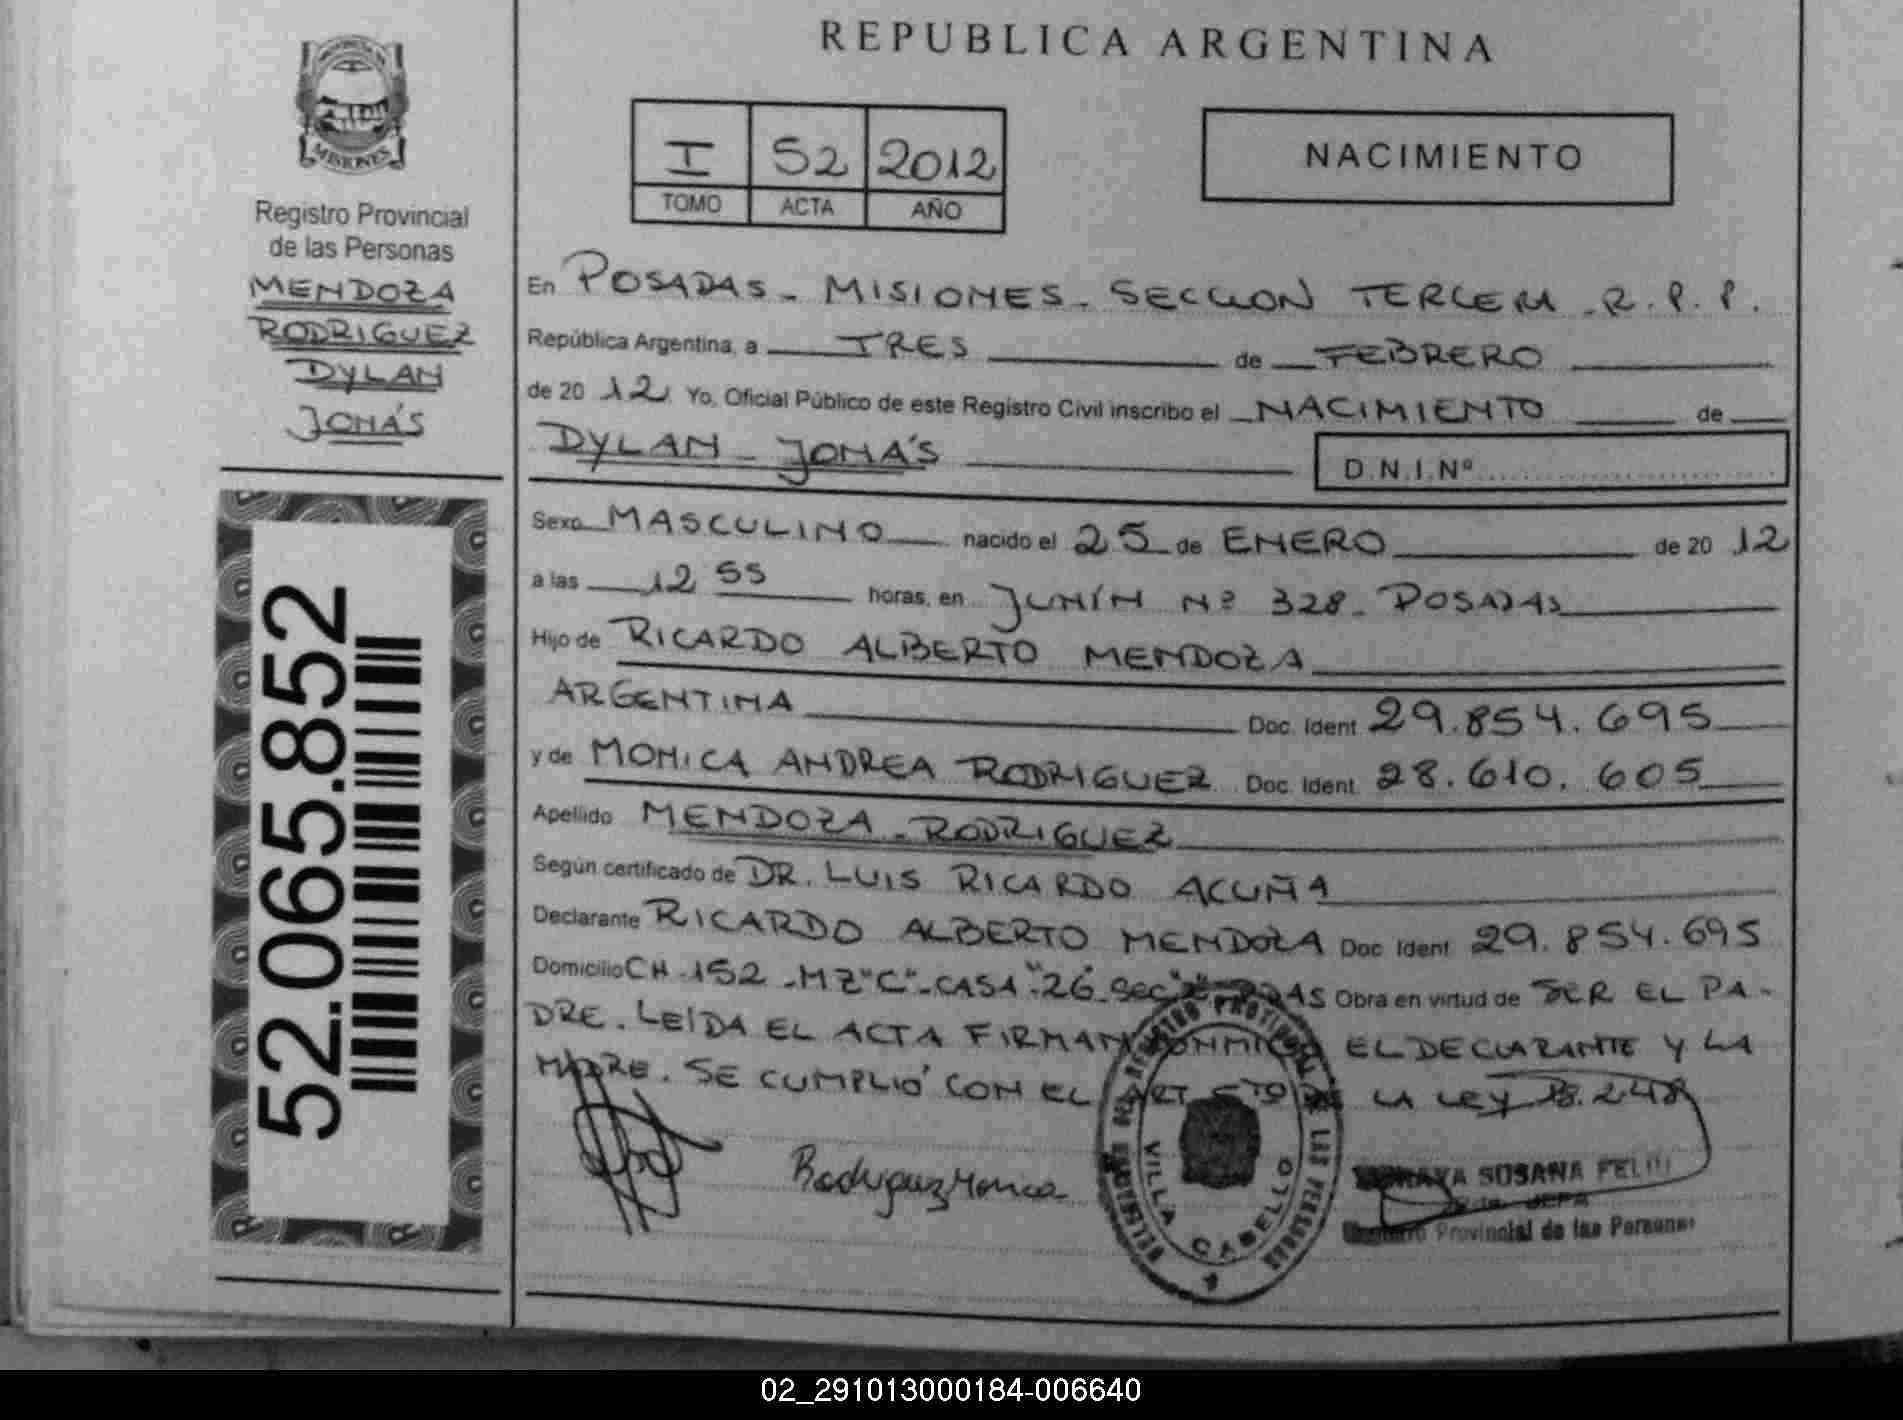 REPUBLICA ARGENTINA
MISIONES
Registro Provincial
de las Personas
MENDOZA
RODRIGUEZ
DYLAN
JONÁS
52.065.852
I 52 2012
TOMO ACTA AÑO
NACIMIENTO
En POSADAS - MISIONES - SECCION TERCERA - R. P. P.
República Argentina, a TRES de FEBRERO
de 20 12 Yo, Oficial Público de este Registro Civil inscribo el NACIMIENTO de
DYLAN - JONÁS D.N.I.Nº
Sexo MASCULINO nacido el 25 de ENERO de 20 12
a las 12 55 horas, en JUNÍN Nº 328 - POSADAS
Hijo de RICARDO ALBERTO MENDOZA
ARGENTINA Doc. Ident. 29.854.695
y de MONICA ANDREA RODRIGUEZ Doc. Ident. 28.610.605
Apellido MENDOZA - RODRIGUEZ
Según certificado de DR. LUIS RICARDO ACUÑA
Declarante RICARDO ALBERTO MENDOZA Doc. Ident. 29.854.695
Domicilio CH - 152 - MZ "C" - CASA "26 - Obra en virtud de SER EL PA-
DRE. LEIDA EL ACTA FIRMAN CONMIGO EL DECLARANTE Y LA
MADRE. SE CUMPLIÓ CON EL ART 5TO DE LA LEY 18.248
Rodriguez Monica
DELEGACION DEL REGISTRO PROVINCIAL DE LAS PERSONAS
VILLA CABELLO
SUSANA
JEFA
Registro Provincial de las Personas
02_291013000184-006640